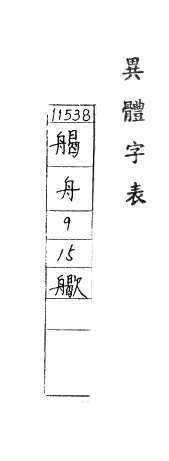 異體字表
11538
䑽
舟
9
15